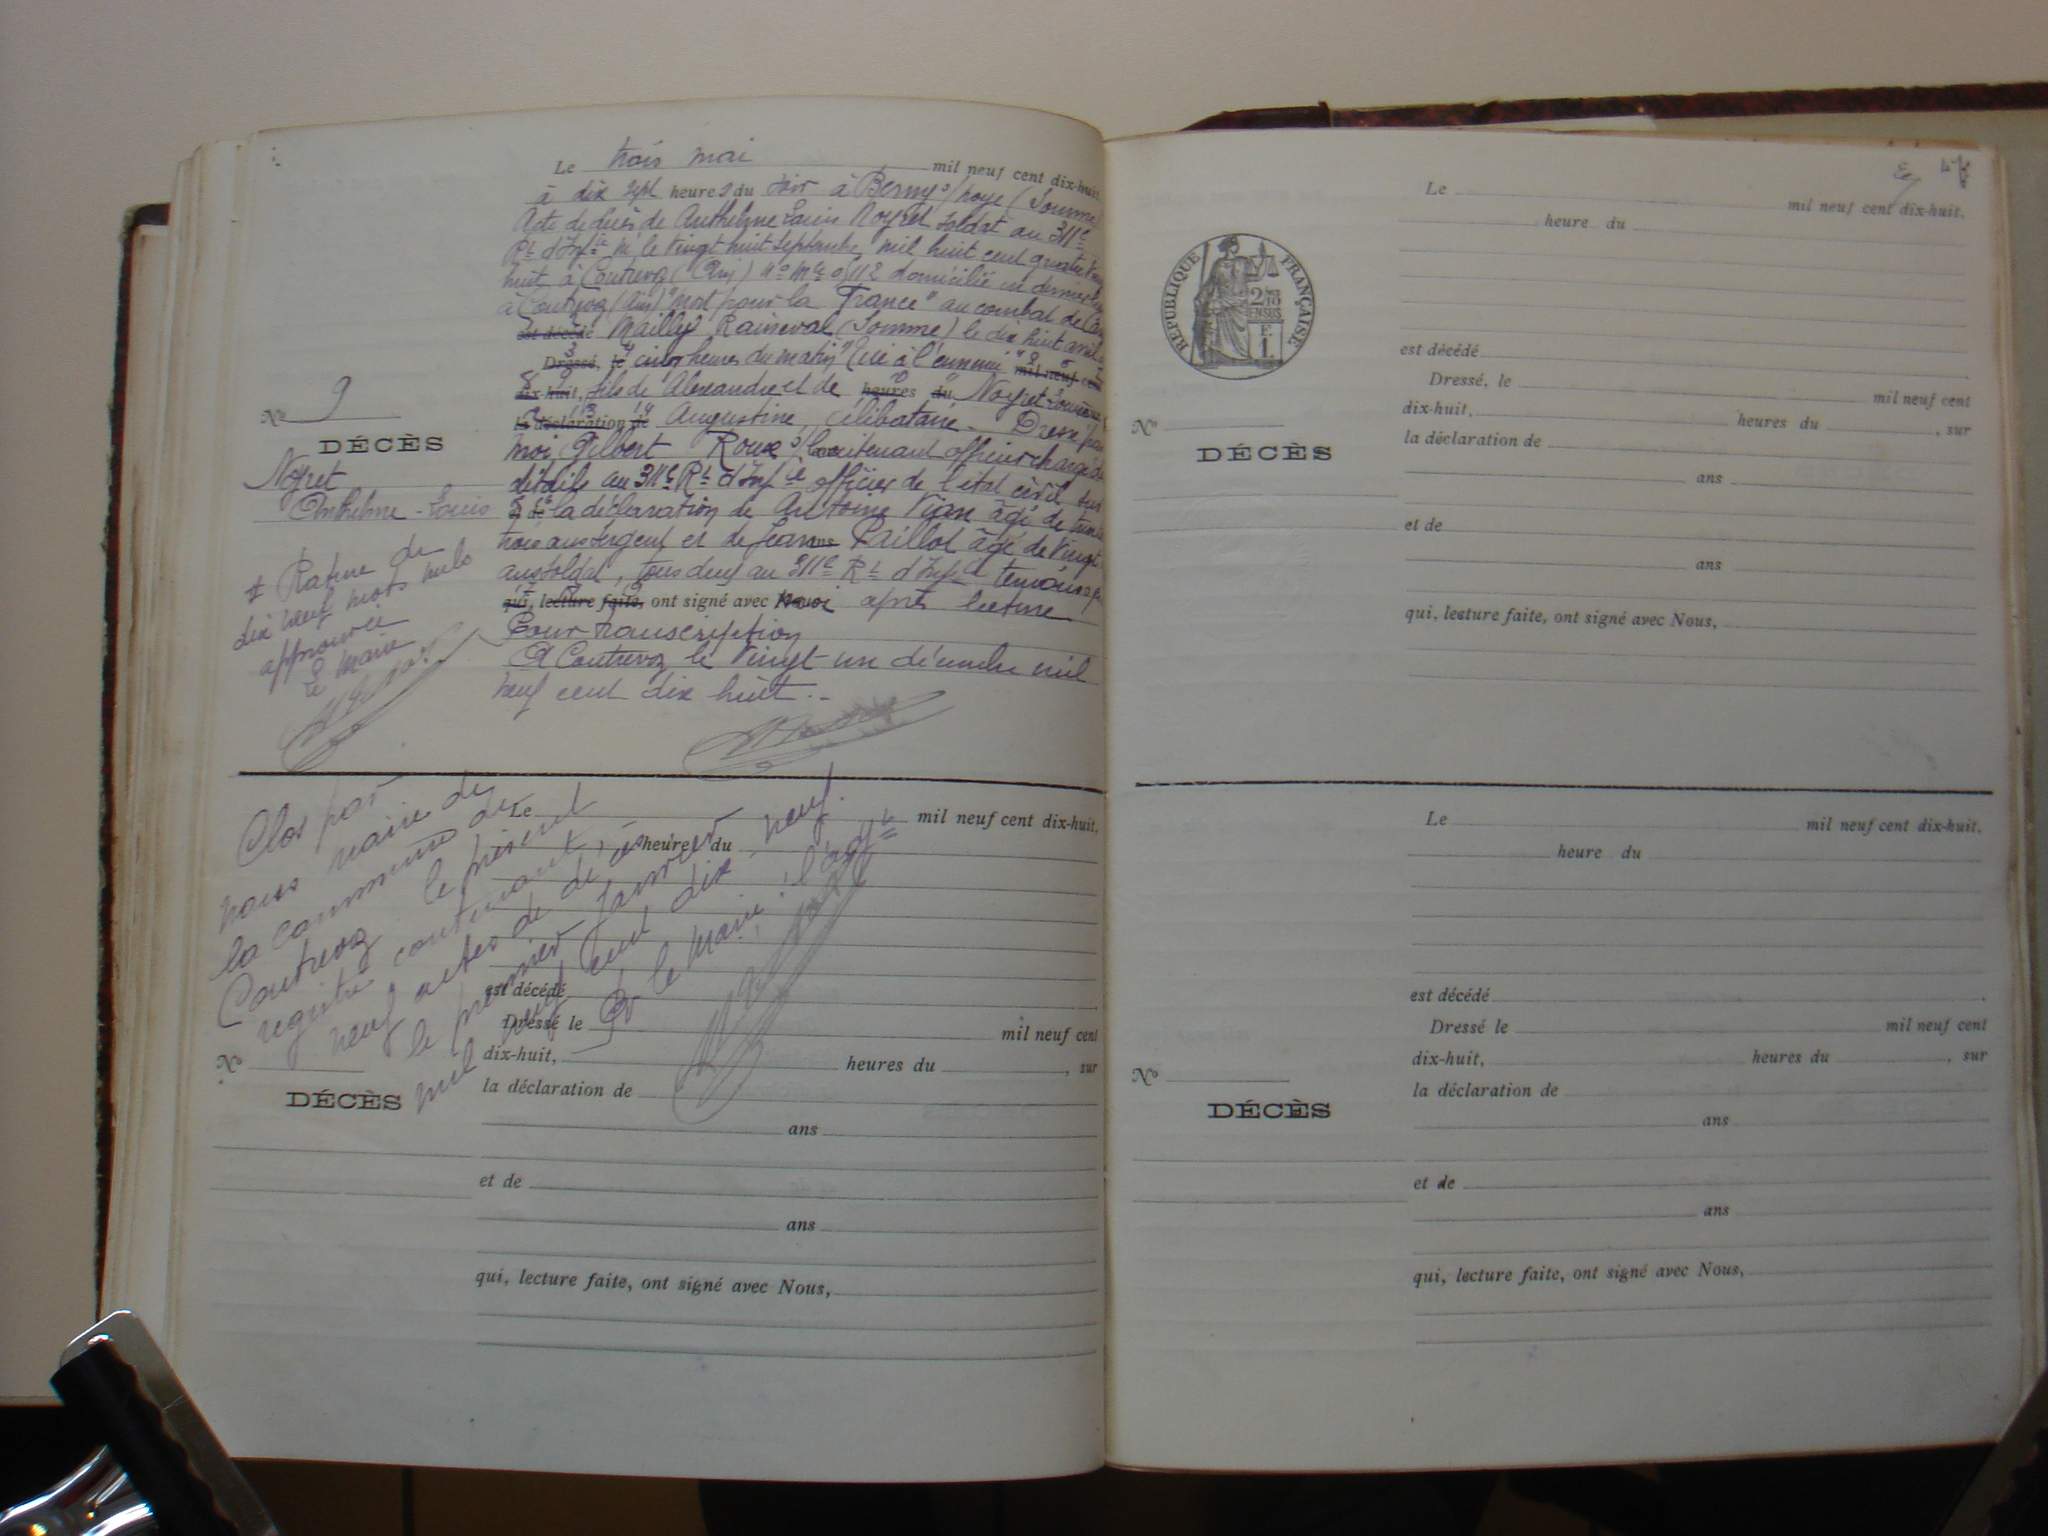 Le trois mai mil neuf cent dix-huit,
à dix sept heures du soir à Berny s/ noye (Somme)
Acte de décès de Anthelme Louis Noyret soldat au 311e
Rt d'Infie né le vingt huit septembre mil huit cent quatre vingt
huit à Contrevoz (Ain) domicilié en dernier
à Contrevoz (Ain) "Mort pour la France" au combat de
est décédé Mailly Raineval (Somme) le dix huit avril
Dressé, le cinq heures du matin "tué à l'ennemi" mil neuf cent
dix-huit, fils de Alexandre et de heures du Noyret
la déclaration de Augustine, célibataire. Dressé par
moi Gilbert Roux s/lieutenant officier chargé des
détails au 311e Rt d'Infie officier de l'état civil sur
la déclaration de Antoine âgé de trente
trois ans sergent et de Jean Paillot âgé de vingt
ans soldat, tous deux au 311e Rt d'Infie témoins qui
qui, lecture faite, ont signé avec moi après lecture
Pour transcription
A Contrevoz le vingt un décembre mil
neuf cent dix huit.
No 9
DÉCÈS
Noyret
Anthelme-Louis
Rature de
dix neuf mots nuls
approuvée
Le Maire
Clos par
nous maire de
la commune de
Contrevoz le présent
registre contenant
neuf actes de décès
le premier Janvier
mil neuf cent dix neuf.
Pr le Maire: l'adjt
Le mil neuf cent dix-huit,
heure du
est décédé
Dressé le mil neuf cent
dix-huit, heures du , sur
No
DÉCÈS
la déclaration de
ans
et de
ans
qui, lecture faite, ont signé avec Nous,
Le mil neuf cent dix-huit,
heure du
RÉPUBLIQUE FRANÇAISE
est décédé
Dressé, le mil neuf cent
dix-huit, heures du , sur
No
DÉCÈS
la déclaration de
ans
et de
ans
qui, lecture faite, ont signé avec Nous,
Le mil neuf cent dix-huit,
heure du
est décédé
Dressé le mil neuf cent
dix-huit, heures du , sur
No
DÉCÈS
la déclaration de
ans
et de
ans
qui, lecture faite, ont signé avec Nous,